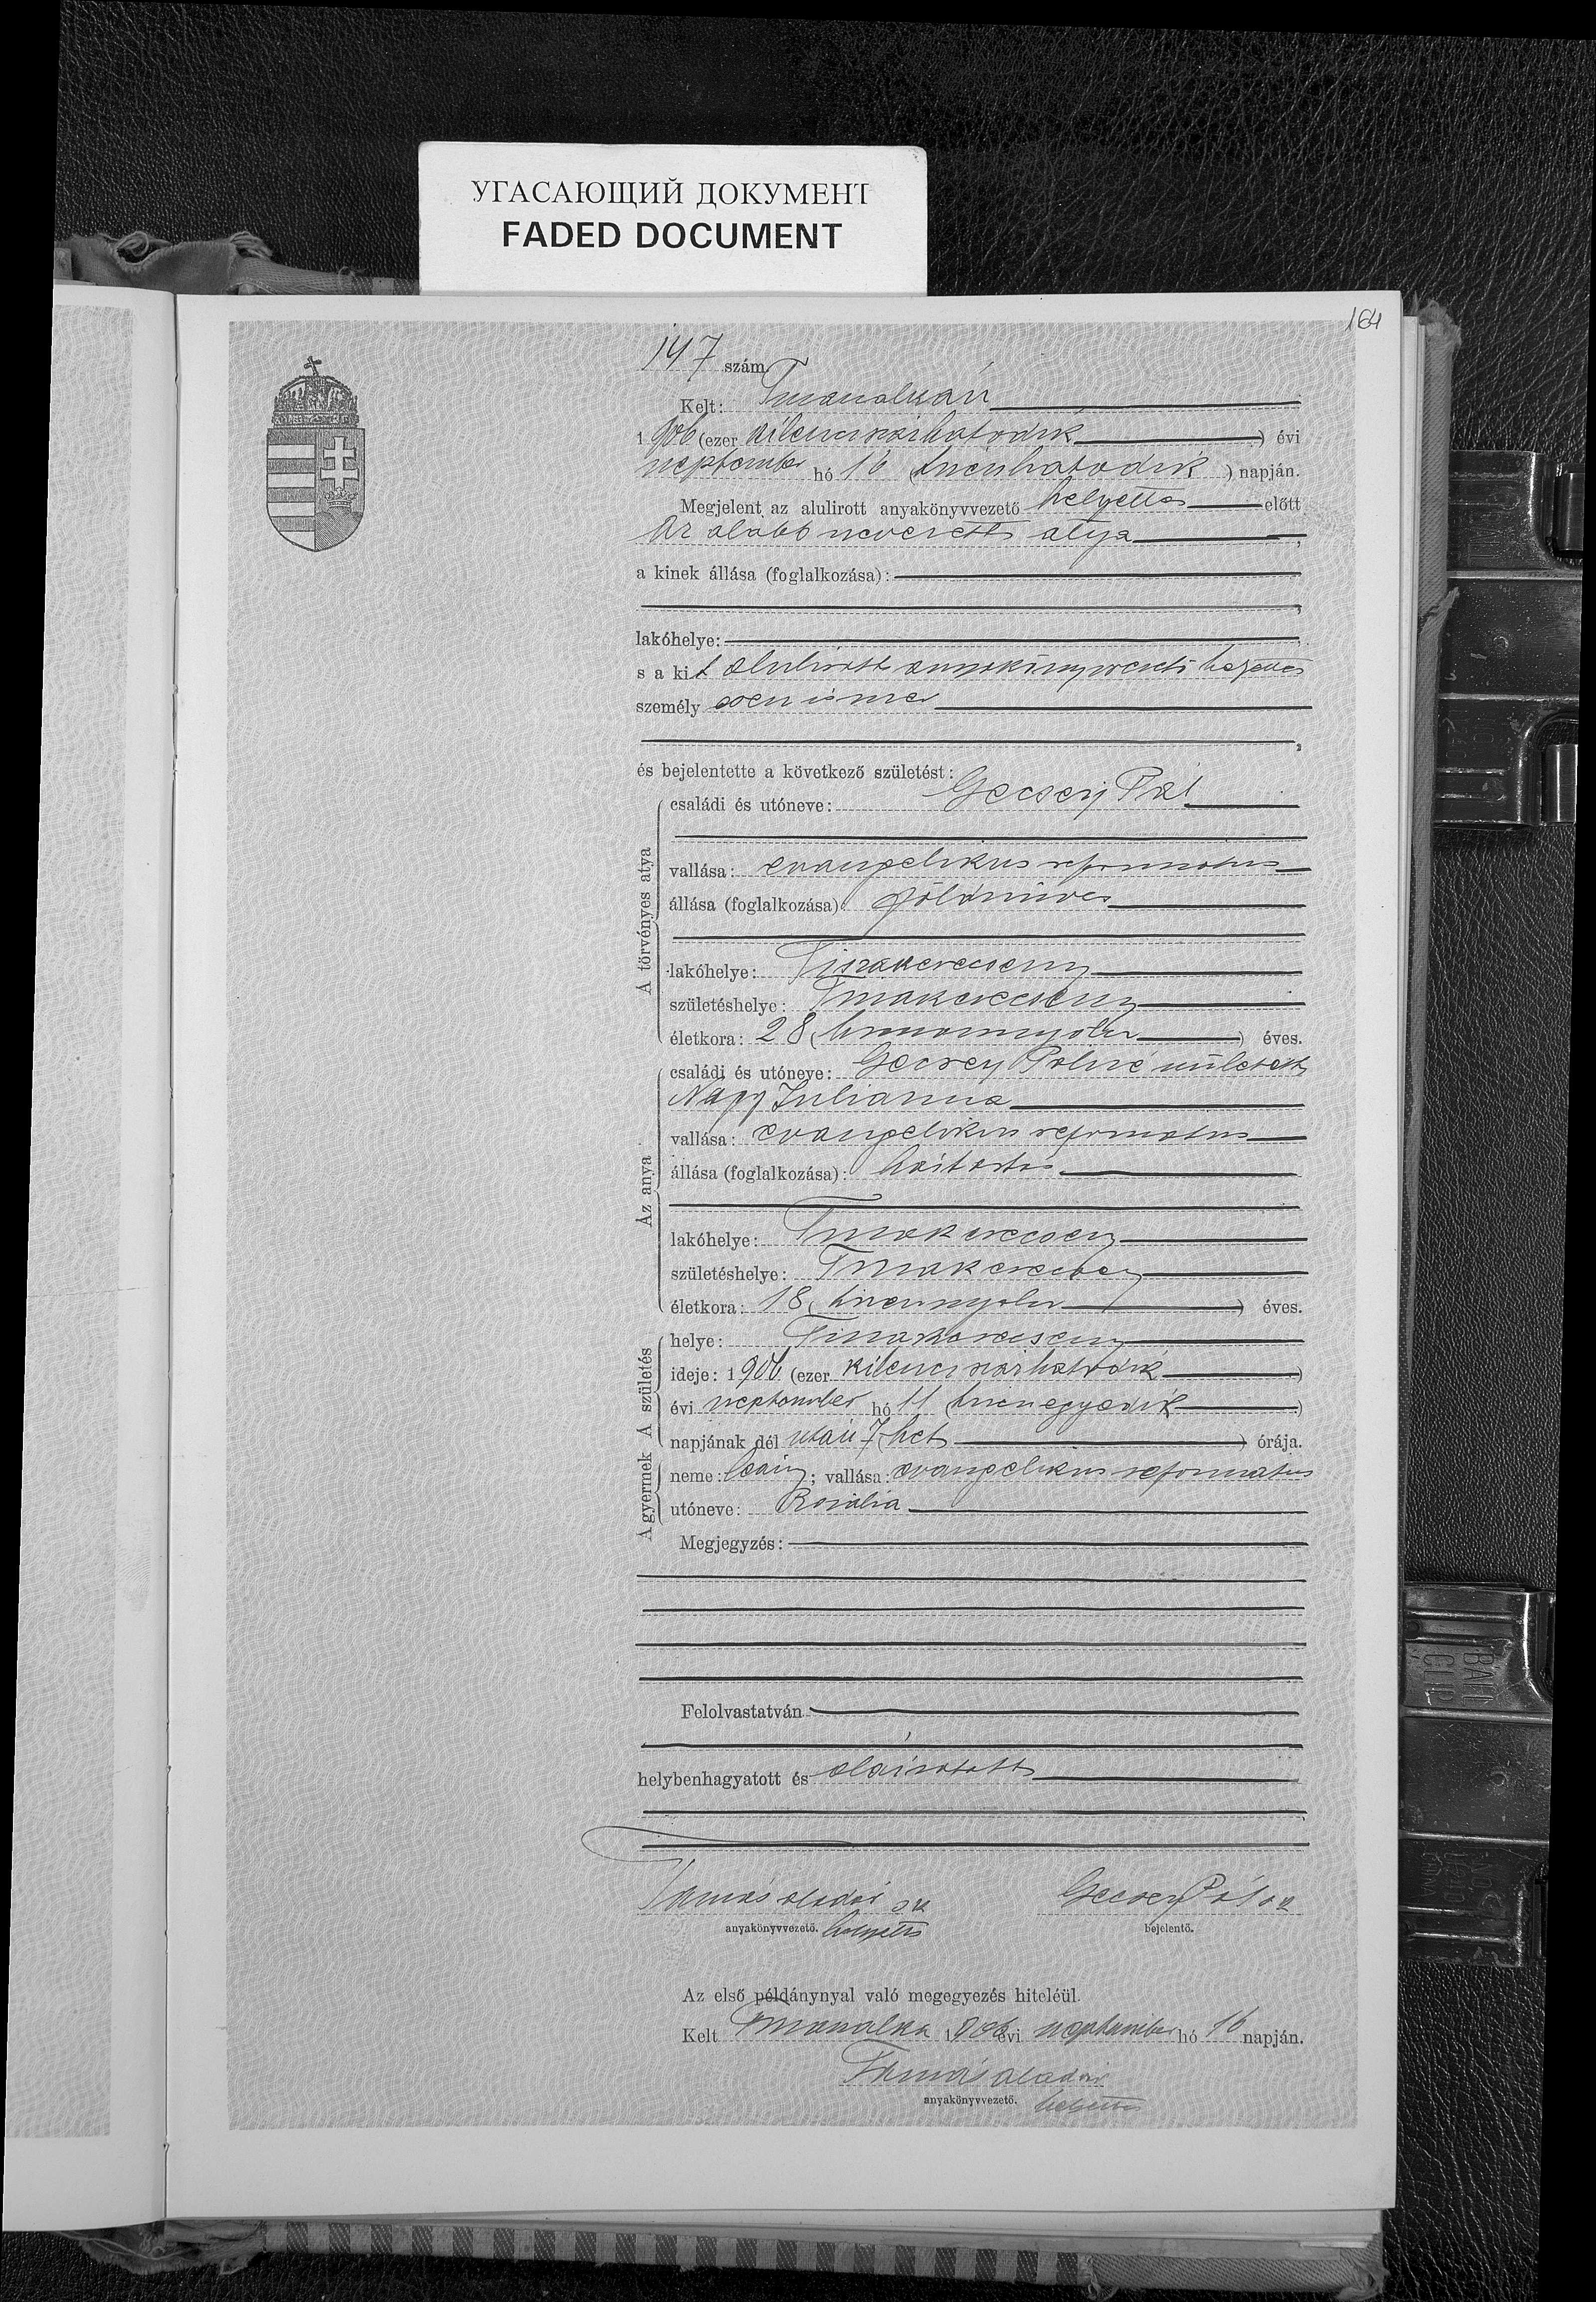 УГАСАЮЩИЙ ДОКУМЕНТ
FADED DOCUMENT
164
147 szám
Kelt: Tiszaadonyán
1906 (ezer kilenczszázhatodik) évi
szeptember hó 16 (tizenhatodik) napján.
Megjelent az alulirott anyakönyvvezető helyettes előtt
Az alább nevezett atya,
a kinek állása (foglalkozása):
lakóhelye:
s a kit alulirott anyakönyvvezető helyettes
személyesen ismer
és bejelentette a következő születést:
A törvényes atya
családi és utóneve: Gecsey Pál
vallása: evangelikus reformatus
állása (foglalkozása): földmüves
lakóhelye: Tiszakerecseny
születéshelye: Tiszakerecseny
életkora: 28 (huszonnyolcz) éves.
Az anya
családi és utóneve: Gecsey Pálné született
Nagy Julianna
vallása: evangelikus reformatus
állása (foglalkozása): háztartás
lakóhelye: Tiszakerecseny
születéshelye: Tiszakerecseny
életkora: 18 (tizennyolcz) éves.
A születés
helye: Tiszakerecseny
ideje: 1906 (ezer kilenczszázhatodik)
évi szeptember hó 11 (tizenegyedik)
napjának dél után 7 (hét) órája.
A gyermek
neme: leány; vallása: evangelikus reformatus
utóneve: Rozália
Megjegyzés:
Felolvastatván
helybenhagyatott és aláiratott
Tamás Aladár sk
Gecsey Pál sk
anyakönyvvezető. helyettes
bejelentő.
Az első példánynyal való megegyezés hiteléül.
Kelt 1906 évi szeptember hó 16 napján.
Tamás Aladár
anyakönyvvezető. helyettes